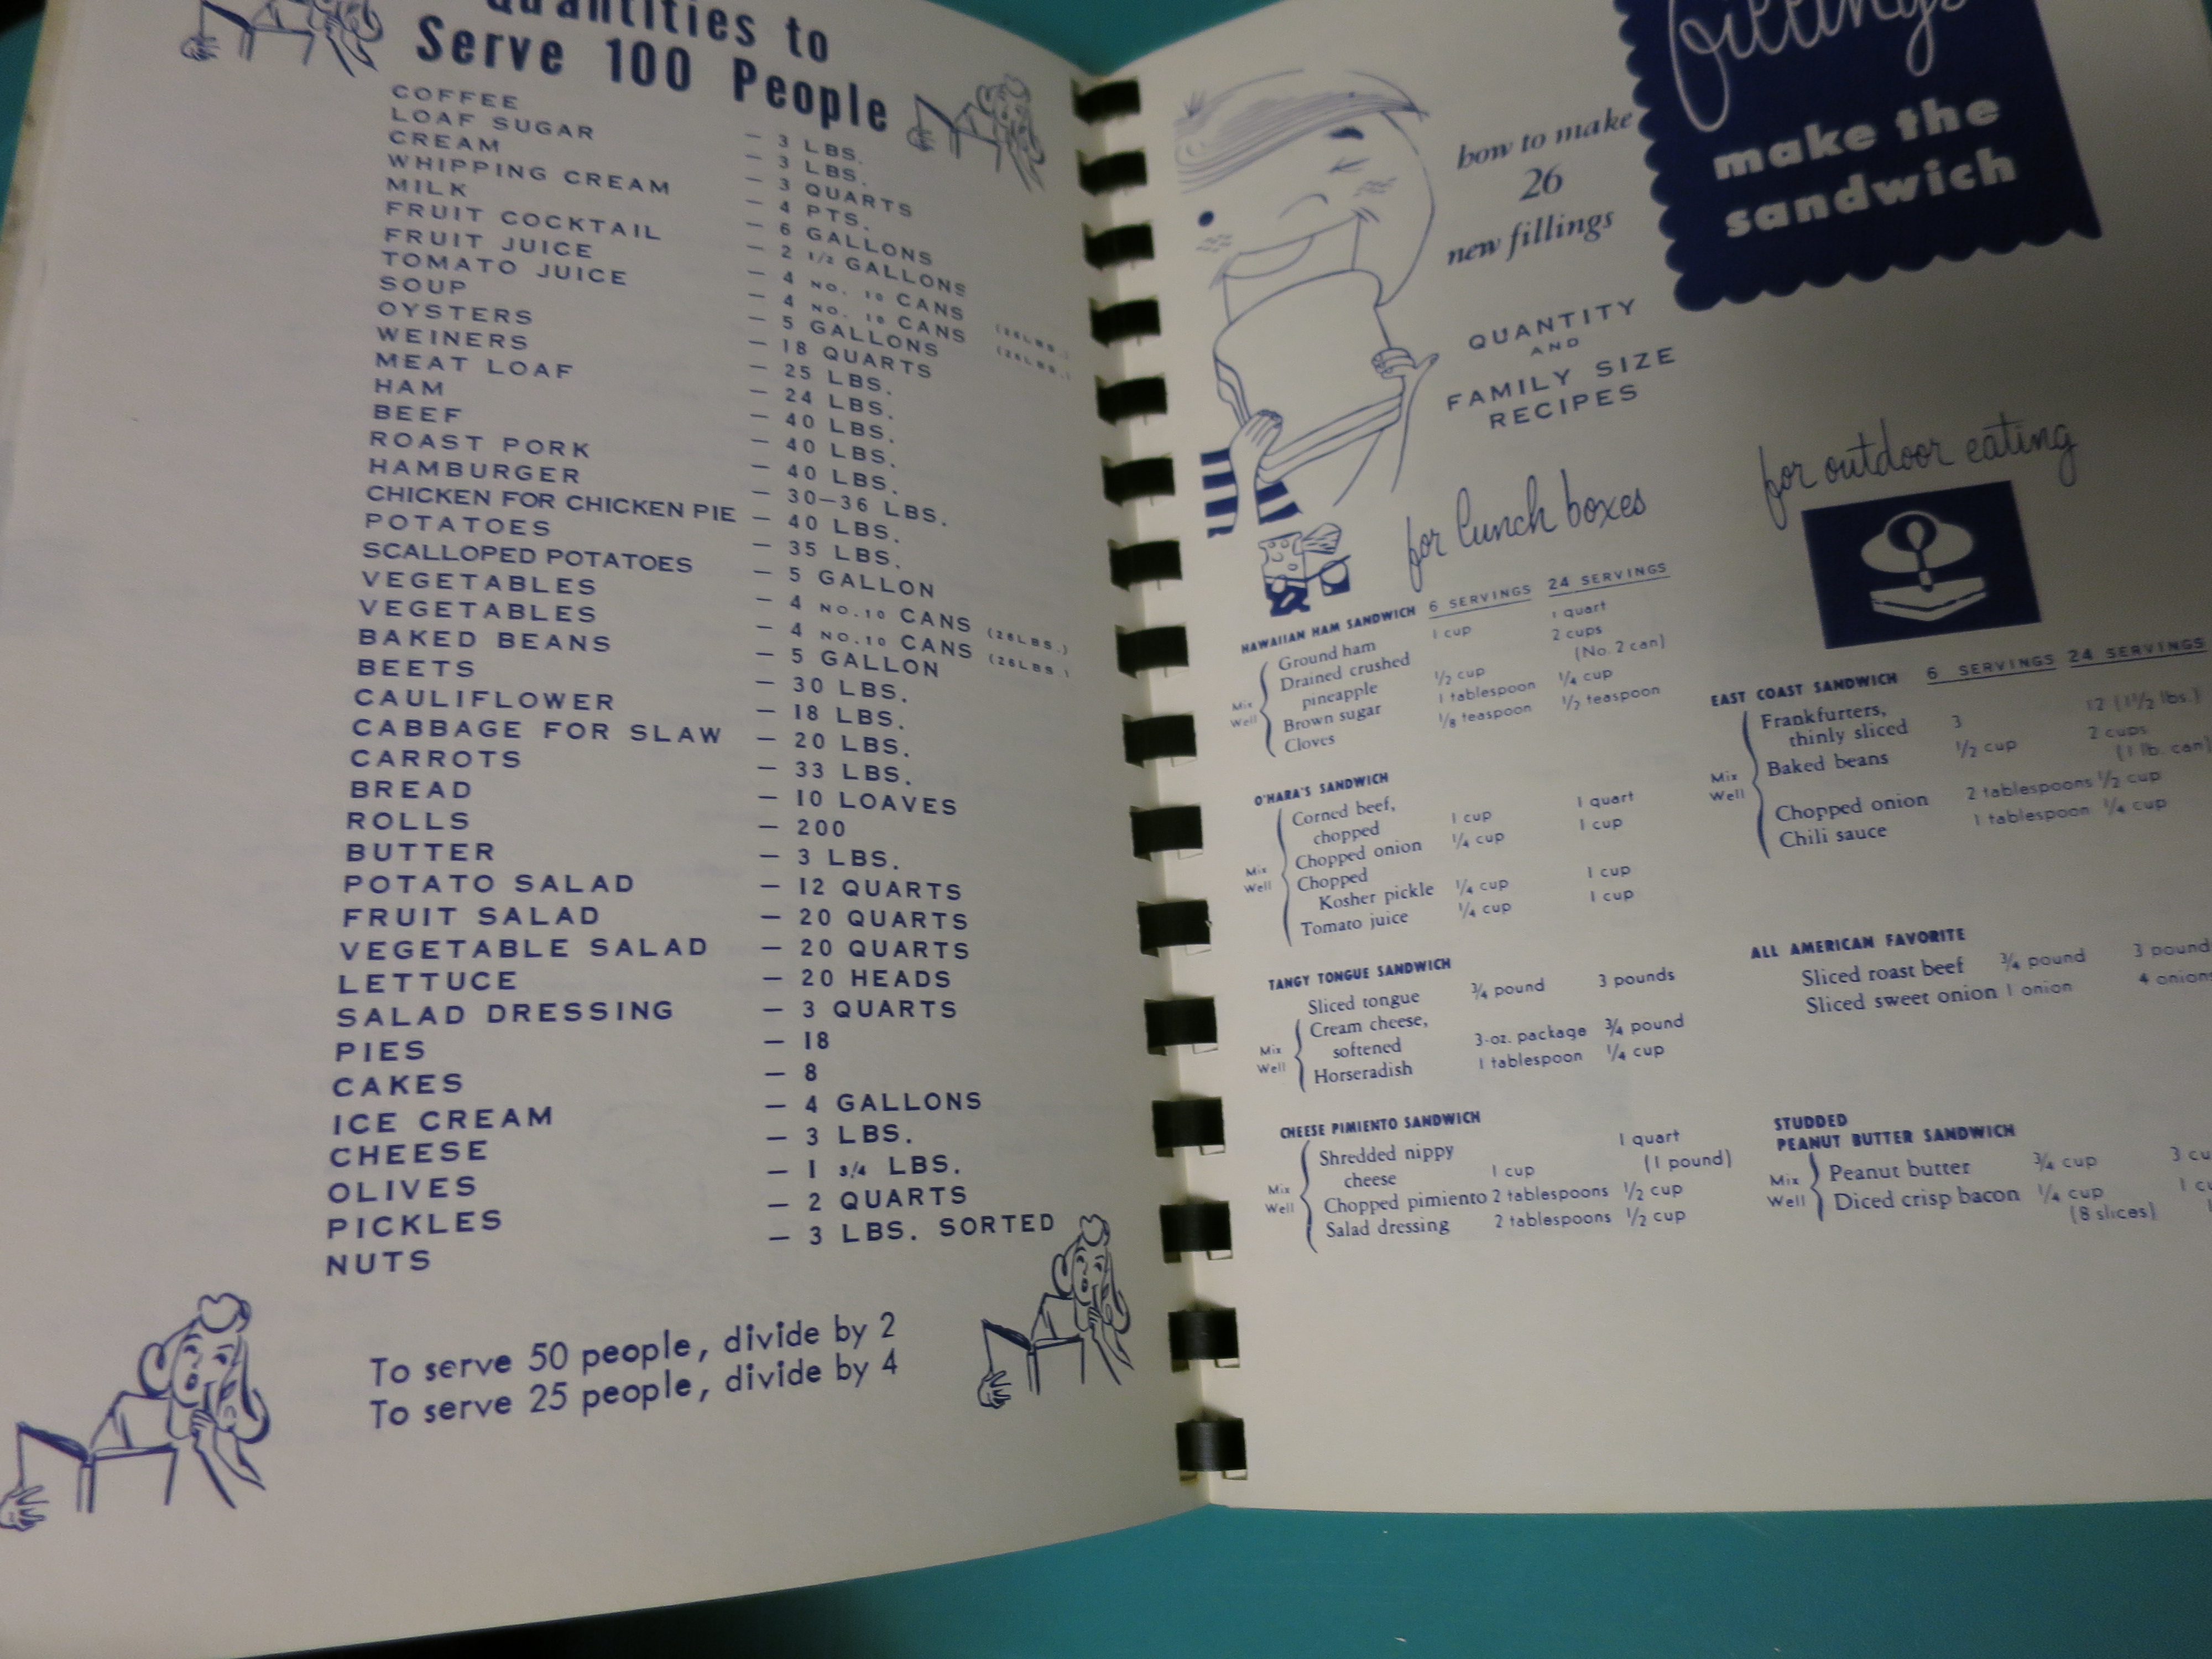 Quantities to
Serve 100 People
COFFEE — 3 LBS.
LOAF SUGAR — 3 LBS.
CREAM — 3 QUARTS
WHIPPING CREAM — 4 PTS.
MILK — 6 GALLONS
FRUIT COCKTAIL — 2 1/2 GALLONS
FRUIT JUICE — 4 NO. 10 CANS (26LBS.)
TOMATO JUICE — 4 NO. 10 CANS (26LBS.)
SOUP — 5 GALLONS
OYSTERS — 18 QUARTS
WEINERS — 25 LBS.
MEAT LOAF — 24 LBS.
HAM — 40 LBS.
BEEF — 40 LBS.
ROAST PORK — 40 LBS.
HAMBURGER — 30–36 LBS.
CHICKEN FOR CHICKEN PIE — 40 LBS.
POTATOES — 35 LBS.
SCALLOPED POTATOES — 5 GALLON
VEGETABLES — 4 NO.10 CANS (26LBS.)
VEGETABLES — 4 NO.10 CANS (26LBS.)
BAKED BEANS — 5 GALLON
BEETS — 30 LBS.
CAULIFLOWER — 18 LBS.
CABBAGE FOR SLAW — 20 LBS.
CARROTS — 33 LBS.
BREAD — 10 LOAVES
ROLLS — 200
BUTTER — 3 LBS.
POTATO SALAD — 12 QUARTS
FRUIT SALAD — 20 QUARTS
VEGETABLE SALAD — 20 QUARTS
LETTUCE — 20 HEADS
SALAD DRESSING — 3 QUARTS
PIES — 18
CAKES — 8
ICE CREAM — 4 GALLONS
CHEESE — 3 LBS.
OLIVES — 1 3/4 LBS.
PICKLES — 2 QUARTS
NUTS — 3 LBS. SORTED
To serve 50 people, divide by 2
To serve 25 people, divide by 4
fillings
make the
sandwich
how to make
26
new fillings
QUANTITY
AND
FAMILY SIZE
RECIPES
for lunch boxes
HAWAIIAN HAM SANDWICH 6 SERVINGS 24 SERVINGS
Mix Well
Ground ham 1 cup 1 quart
Drained crushed 2 cups
pineapple 1/2 cup (No. 2 can)
Brown sugar 1 tablespoon 1/4 cup
Cloves 1/8 teaspoon 1/2 teaspoon
O'HARA'S SANDWICH
Mix Well
Corned beef,
chopped 1 cup 1 quart
Chopped onion 1/4 cup 1 cup
Chopped
Kosher pickle 1/4 cup 1 cup
Tomato juice 1/4 cup 1 cup
TANGY TONGUE SANDWICH
Sliced tongue 3/4 pound 3 pounds
Mix Well
Cream cheese,
softened 3-oz. package 3/4 pound
Horseradish 1 tablespoon 1/4 cup
CHEESE PIMIENTO SANDWICH
Mix Well
Shredded nippy 1 quart
cheese 1 cup (1 pound)
Chopped pimiento 2 tablespoons 1/2 cup
Salad dressing 2 tablespoons 1/2 cup
for outdoor eating
EAST COAST SANDWICH 6 SERVINGS 24 SERVINGS
Mix Well
Frankfurters,
thinly sliced 3 12 (1 1/2 lbs.)
Baked beans 1/2 cup 2 cups
(1 lb. can)
Chopped onion 2 tablespoons 1/2 cup
Chili sauce 1 tablespoon 1/4 cup
ALL AMERICAN FAVORITE
Sliced roast beef 3/4 pound 3 pound
Sliced sweet onion 1 onion 4 onions
STUDDED
PEANUT BUTTER SANDWICH
Mix Well
Peanut butter 3/4 cup 3 cu
Diced crisp bacon 1/4 cup 1 cu
(8 slices)